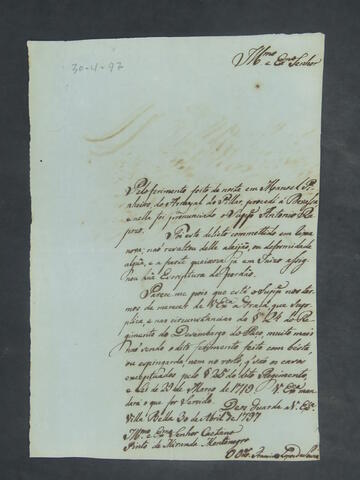 30-4-97
Illmo e Exmo Senhor
Pelo ferimento feito de noite em Manoel Pi-
nheiro, do Arrayal do Pillar, procedi a Devassa,
e nella foi pronunciado o Supp.e Antonio
Foi este delicto commettido em
nova; não resultou delle aleijão, ou deformidade
algũa, e a parte queixosa já em Juizo assig-
nou sua Escriptura de perdão.
Parece me pois que está o Supp.e nos ter-
mos de merecer de V. Ex.a a Graça que Sup-
plica, e nas circunstancias do § 24 do Re-
gimento do Dezembargo do Paço, muito mais
não sendo o dito ferimento feito com bésta,
ou espingarda, nem no rosto, q' são os cazos
exceptuados pelo § do dito Regimento,
e Lei de Março de 1719 V. Ex.a man-
dará o que for Servido.
Deos Guarde a V. Ex.a
Villa Bella 30 de Abril de 1797
Illmo e Exmo Senhor Caetano
Pinto de Miranda Montenegro